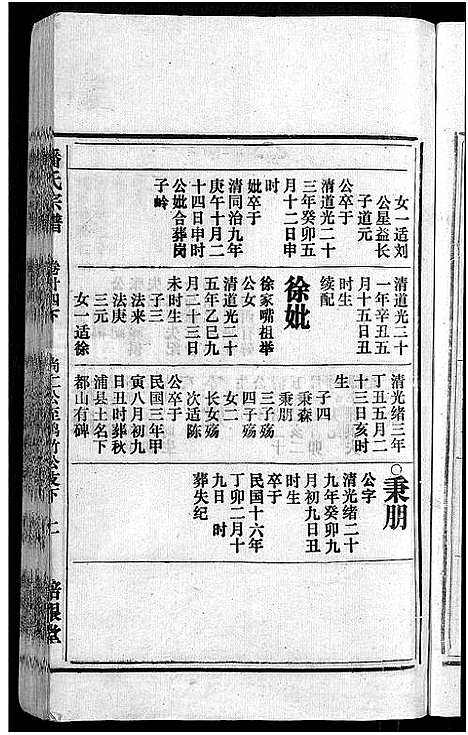 女一适刘
公星益长
子道元
公卒于
清道光二十
三年癸卯五
月十二日申
时
妣卒于
清同治九年
庚午十月二
十四日申时
公妣合葬岗
子岭
清道光二十
一年辛丑五
月十五日丑
时生
续配
徐妣
徐家嘴祖举
公女
清道光二十
五年乙巳九
月二十三日
未时生
子三
法来
法庚
三元
女一适徐
清光绪三年
丁丑五月二
十三日亥时
生
子四
秉森
秉朋
三子殇
四子殇
女二
长女殇
次适陈
公卒于
民国三年甲
寅八月初九
日丑时葬秋
浦县土名下
都山有碑
○秉朋
公字
清光绪二十
九年癸卯九
月初九日丑
时生
卒于
民国十六年
丁卯二月十
九日 时
葬失纪
潘氏宗谱
卷廿四下
尚仁公至
公支下
培根堂